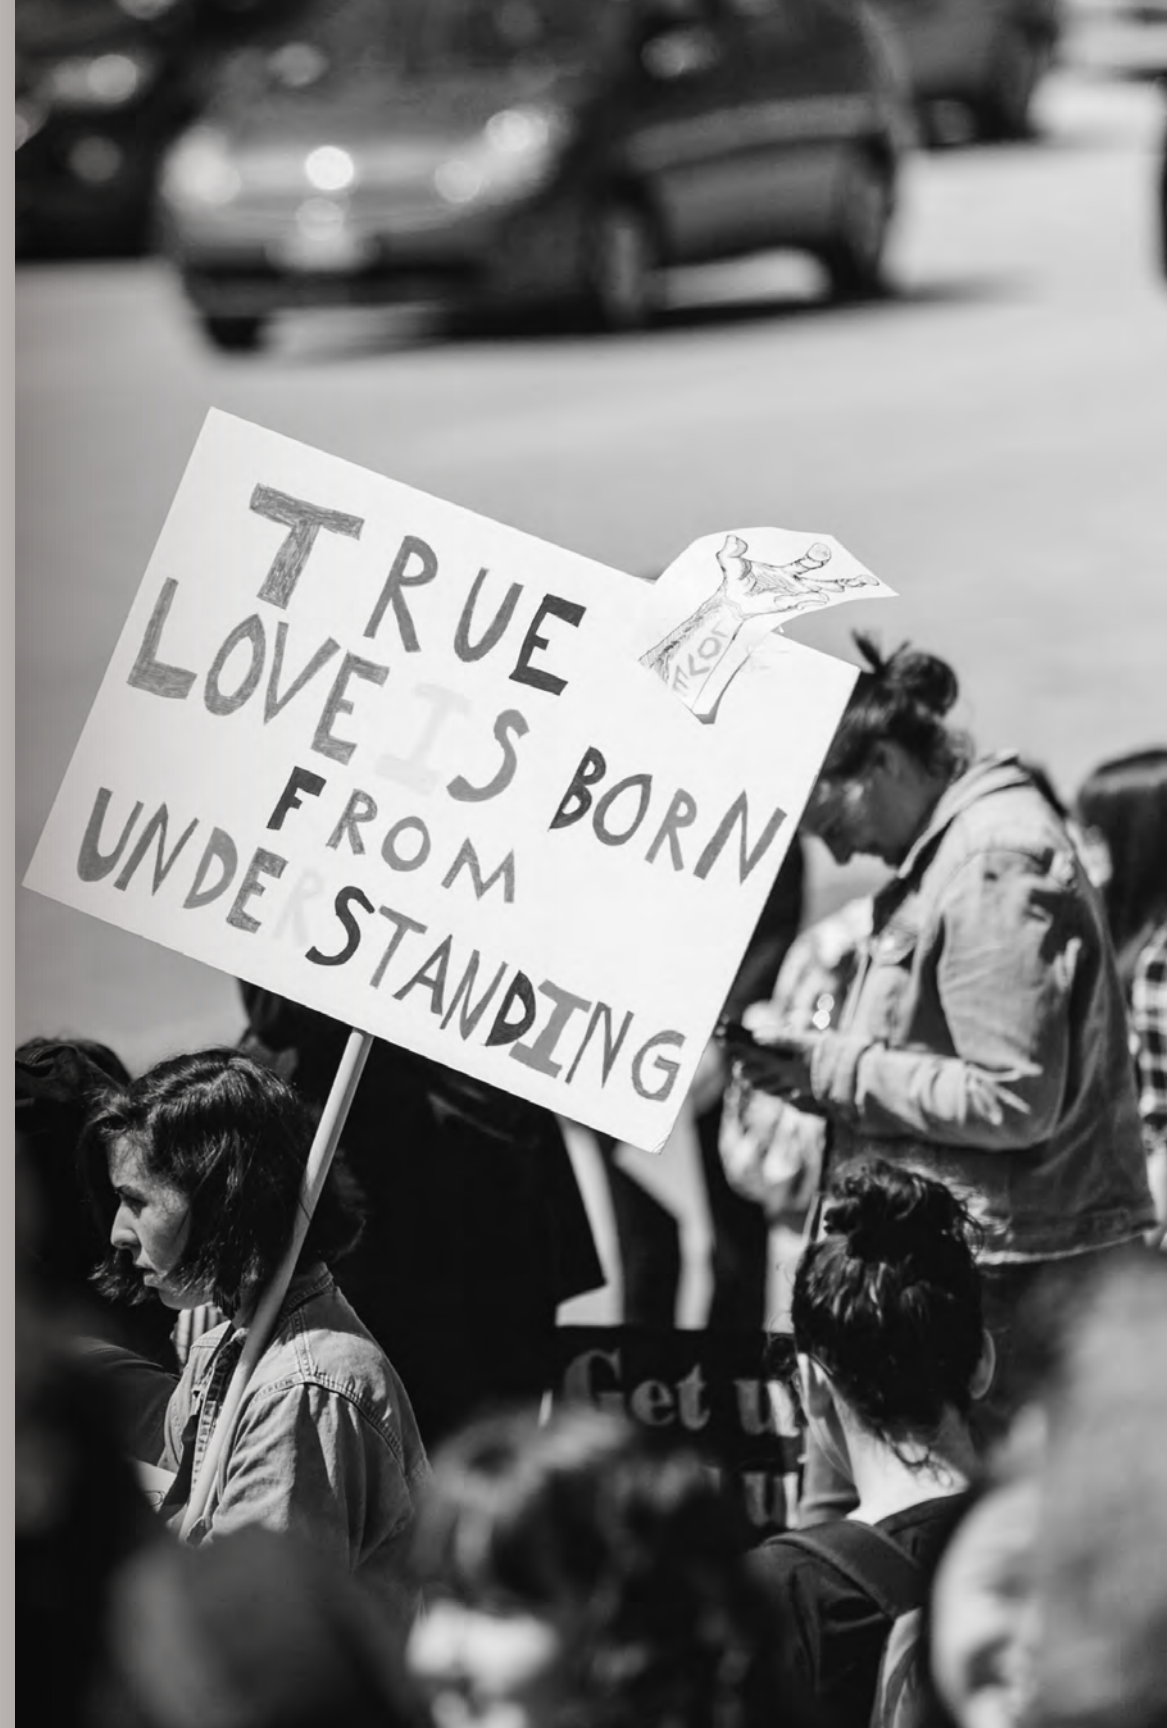 TRUE
LOVE IS BORN
FROM
UNDERSTANDING
LOVE
Get